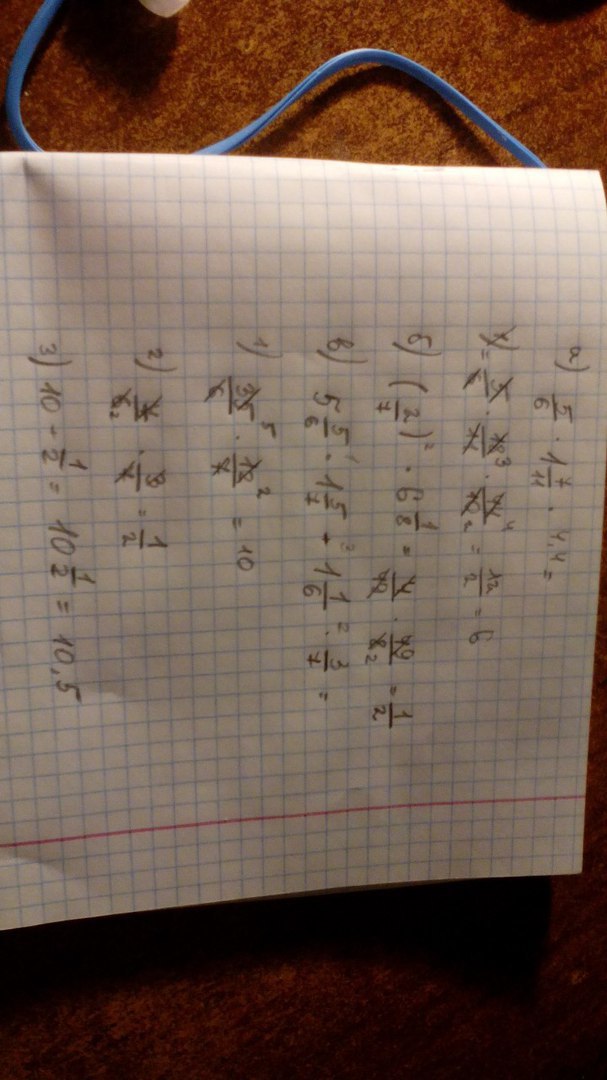 а) 5/6 · 1 7/11 · 4,4 =
= 5/6 · 18/11 3 · 44/10 4 2 = 12/2 = 6
б) (2/7)² · 6 1/8 = 4/49 · 49/8 2 = 1/2
в) 5 5/6 ·¹ 1 5/7 +³ 1 1/6 ·² 3/7 =
1) 35/6 5 · 12/7 2 = 10
2) 7/6 2 · 3/7 = 1/2
3) 10 + 1/2 = 10 1/2 = 10,5